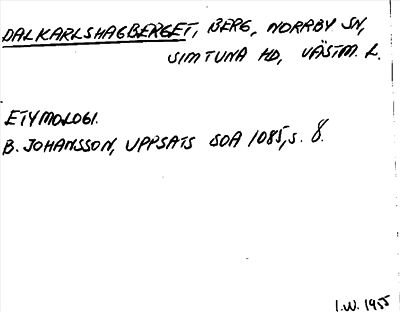 DALKARLSHAGBERGET, BERG, NORRBY SN,
SIMTUNA HD, VÄSTM. L.
ETYMOLOGI.
B. JOHANSSON, UPPSATS SOA 1085, S. 8.
I.W. 1955